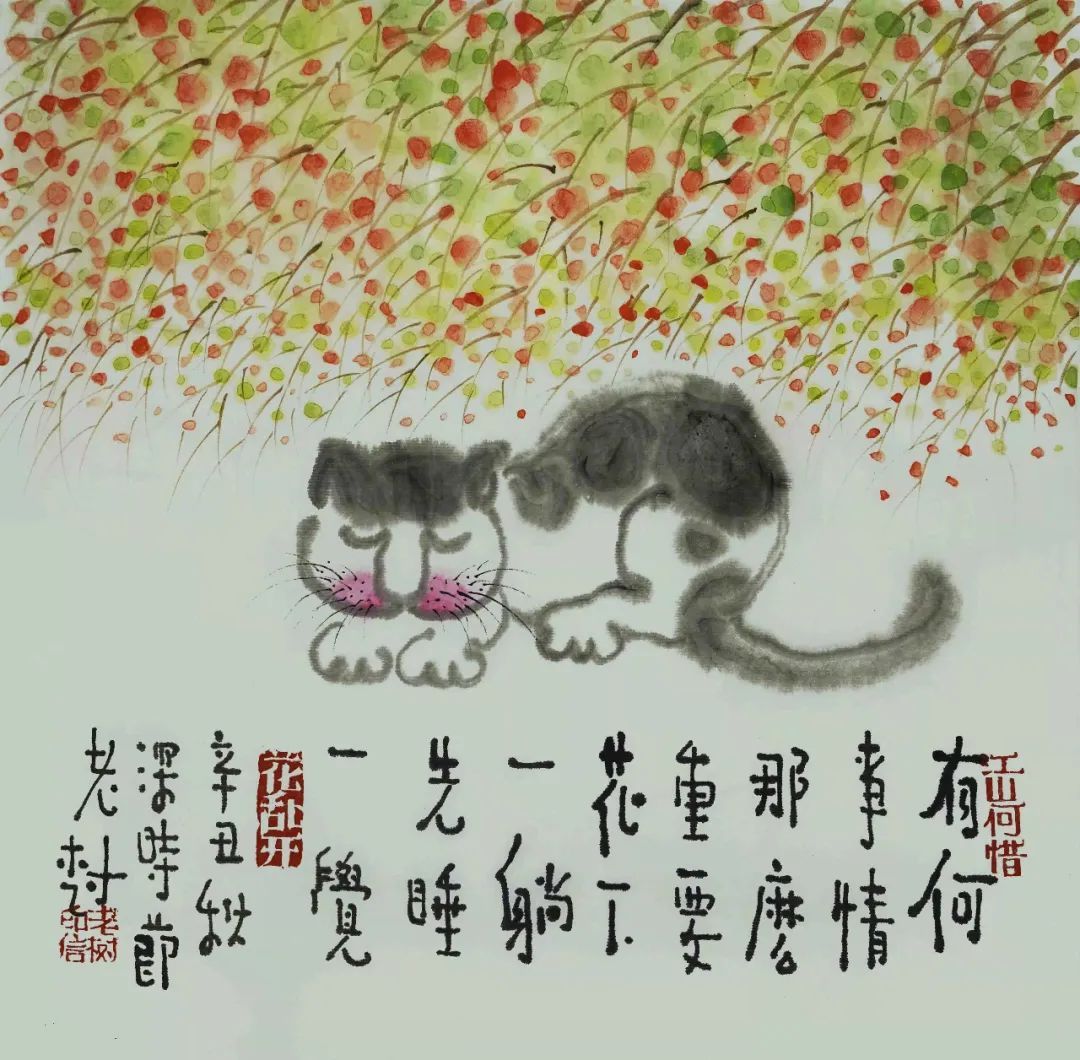 江山何惜
有何
事情
那麼
重要
花下
一躺
先睡
一覺
花乱开
辛丑秋
深時節
老树
老树印信